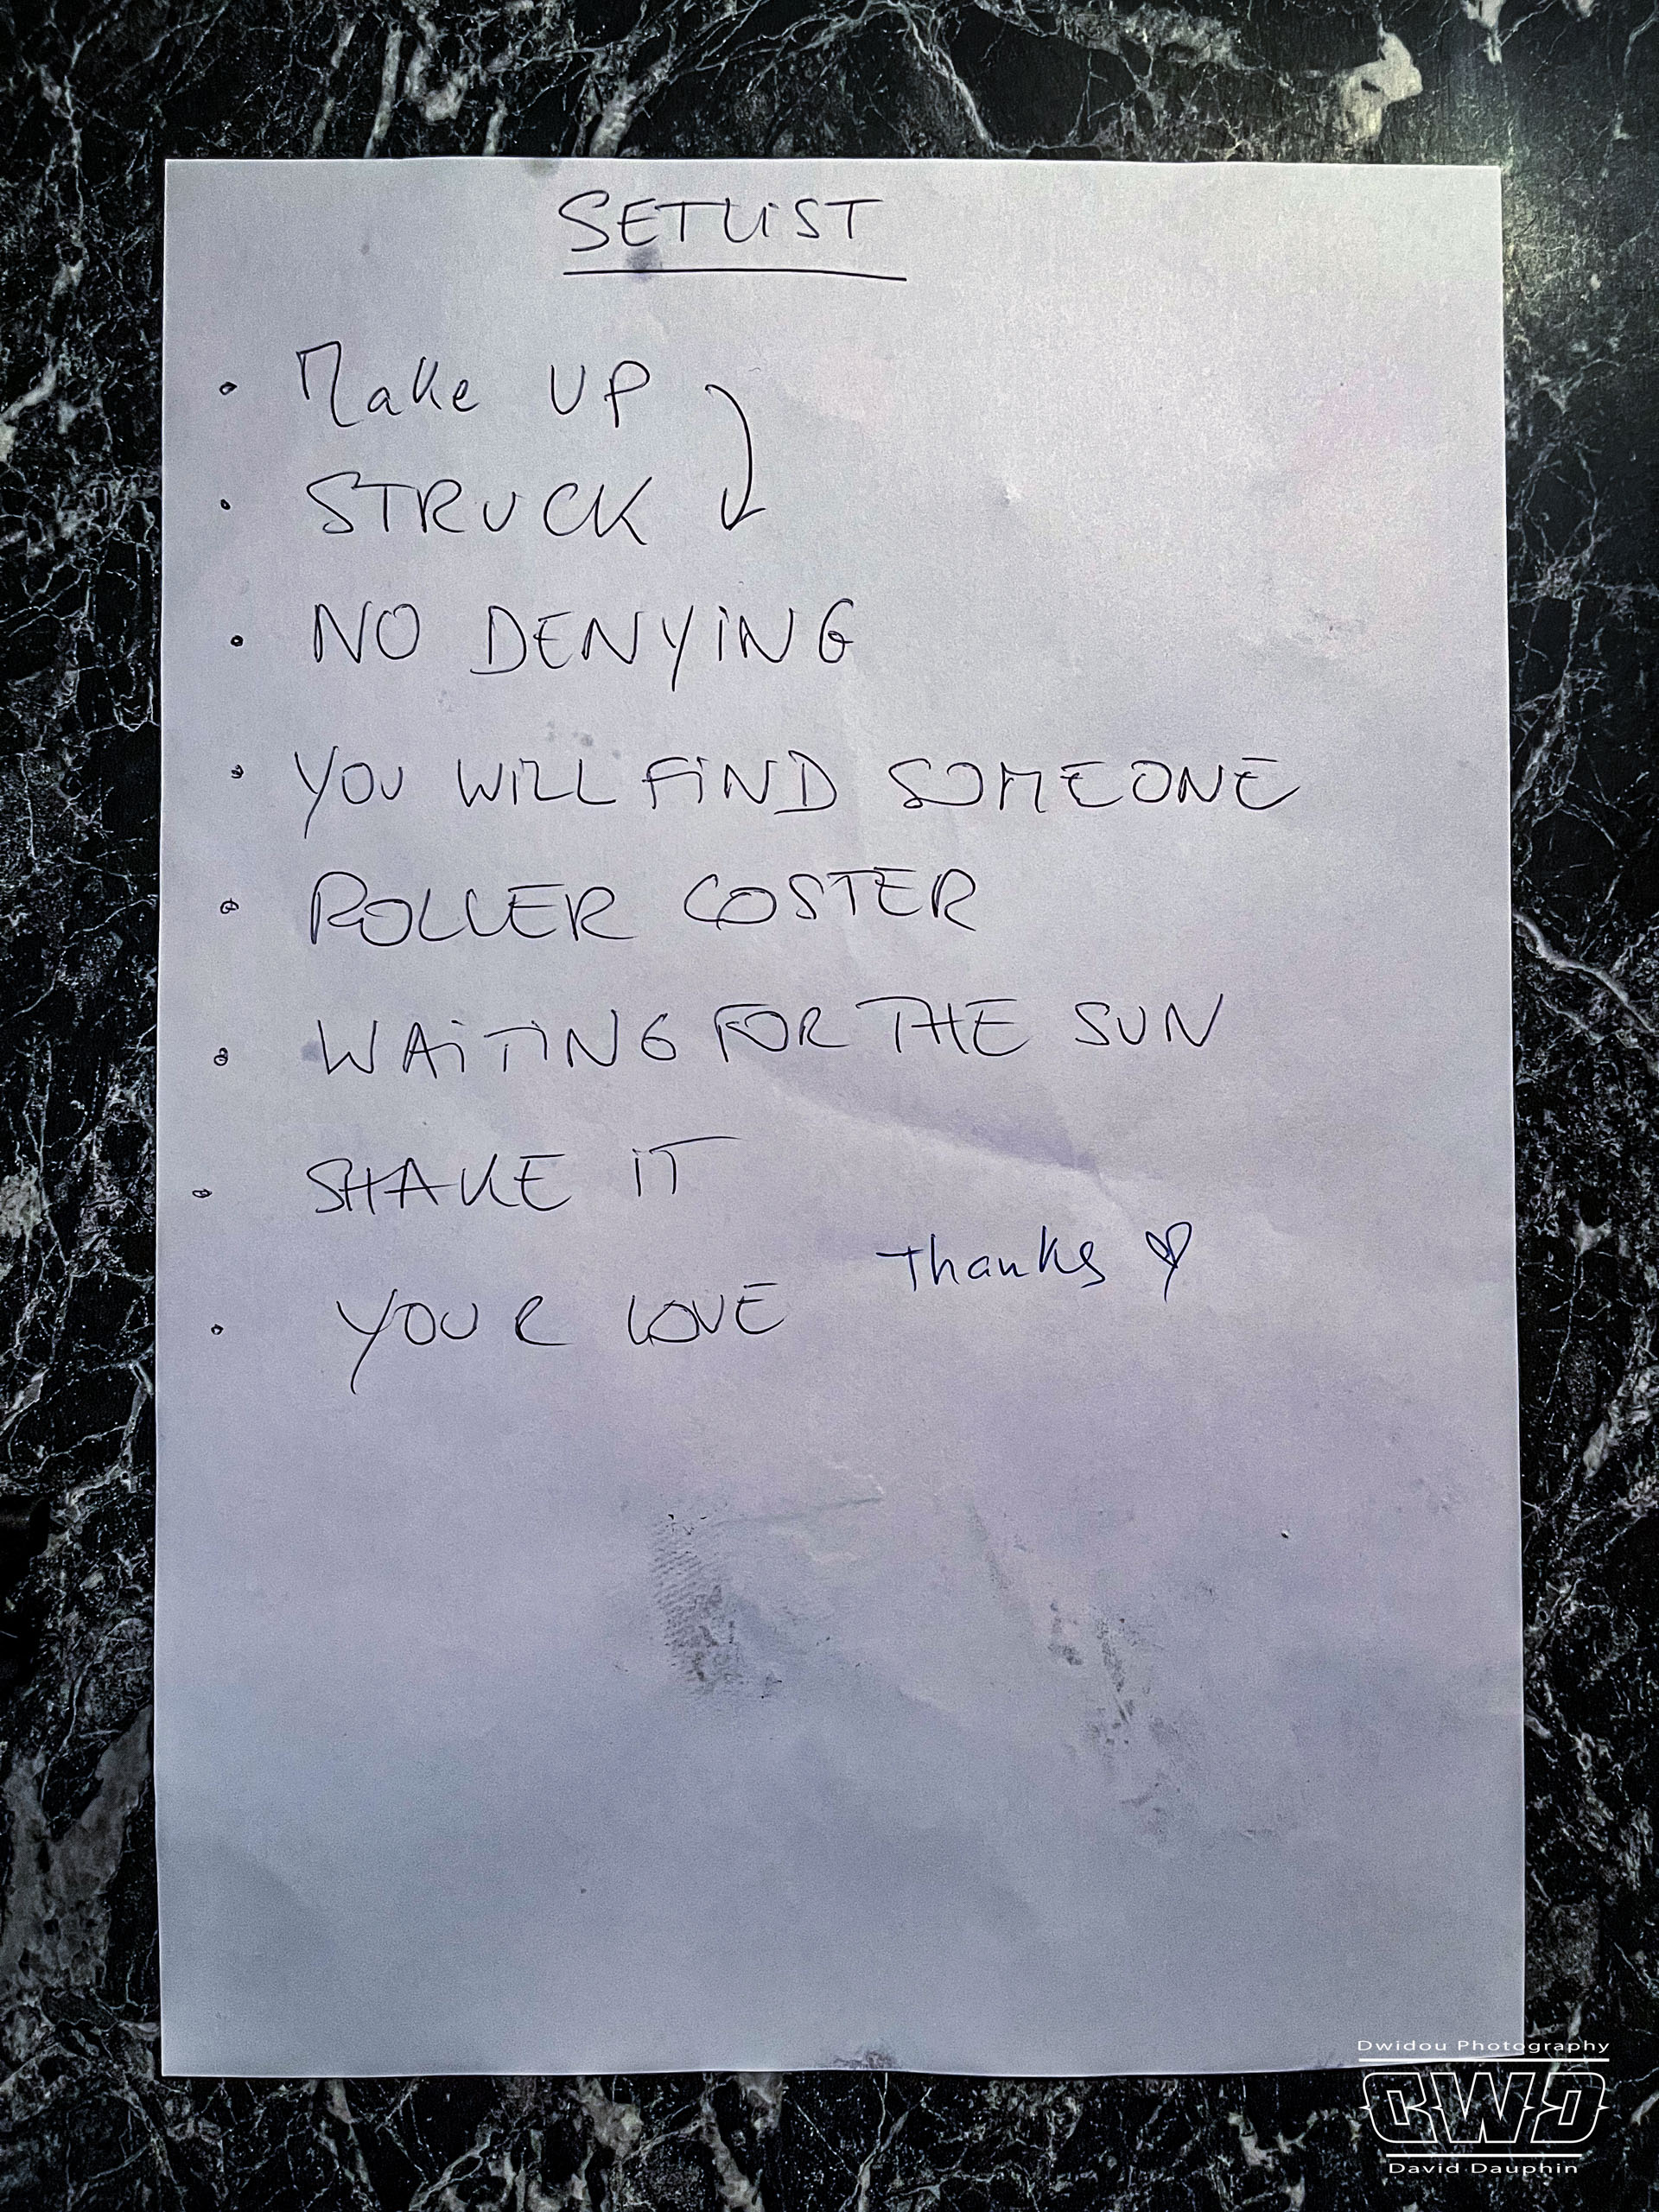 SETLiST
• Make UP
• STRUCK
• NO DENYiNG
• YOU WiLL FiND SOMEONE
• ROLLER COSTER
• WAiTiNG FOR THE SUN
• SHAKE iT
Thanks ♡
• YOUR LOVE
Dwidou Photography
DWD
David Dauphin